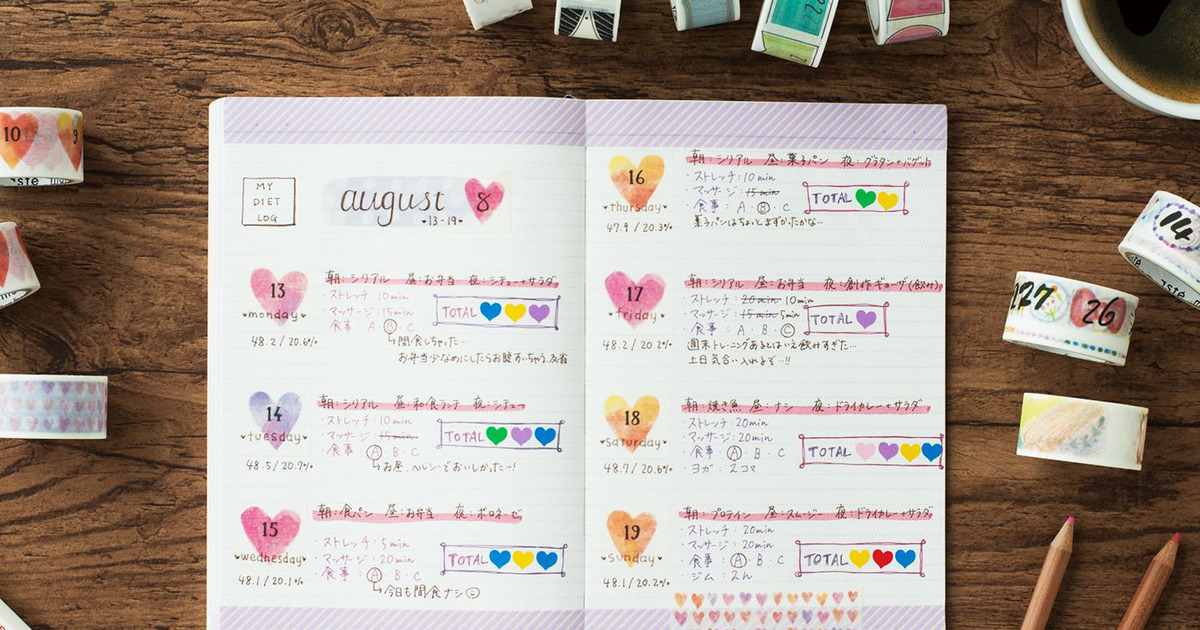 MY
DIET
LOG
august 8
・13-19・
13
monday
48.2 / 20.6%
朝：シリアル 昼：お弁当 夜：シチュー+サラダ
・ストレッチ：10min
・マッサージ：15min
・食事：A・B・C
TOTAL
↳間食しちゃった…
お弁当少なめにしたらお腹すいちゃう。反省
14
tuesday
48.5 / 20.7%
朝：シリアル 昼：和食ランチ 夜：シチュー
・ストレッチ：10min
・マッサージ：15min
・食事：A・B・C
TOTAL
↳お昼、ヘルシーでおいしかったー!
15
wednesday
48.1 / 20.1%
朝：食パン 昼：お弁当 夜：ボロネーゼ
・ストレッチ：5min
・マッサージ：20min
・食事：A・B・C
TOTAL
↳今日も間食ナシ
16
thursday
47.9 / 20.3%
朝：シリアル 昼：菓子パン 夜：グラタン+バゲット
・ストレッチ：10min
・マッサージ：15min
・食事：A・B・C
TOTAL
菓子パンはちょっとまずかったかな…
17
friday
48.2 / 20.2%
朝：シリアル 昼：お弁当 夜：創作ギョーザ(飲み)
・ストレッチ：20min 10min
・マッサージ：15min 5min
・食事：A・B・C
TOTAL
週末トレーニングあるとはいえ飲みすぎた…
土日気合い入れるぞ…!!
18
saturday
48.7 / 20.6%
朝：焼き魚 昼：ナシ 夜：ドライカレー+サラダ
・ストレッチ：20min
・マッサージ：20min
・食事：A・B・C
・ヨガ：2コマ
TOTAL
19
sunday
48.1 / 20.2%
朝：プロテイン 昼：スムージー 夜：ドライカレー+サラダ
・ストレッチ：20min
・マッサージ：20min
・食事：A・B・C
・ジム：2h
TOTAL
10
9
14
27
26